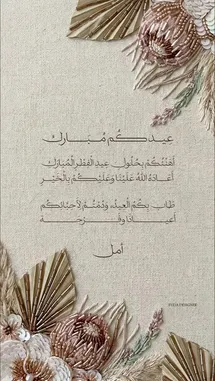 عيدكُم مُبَارك
أهَنّئكُم بِحُلولِ عيدِ الفِطرِ المُبَارَك
أعَادَهُ اللهُ عَلَيْنَا وَعَليْكُم بِالخَيْرِ
طَابَ بِكُم العِيدُ، وَدُمْتُم لِأحبَائِكُم
أعيَادًا وفَرحَة
أمل